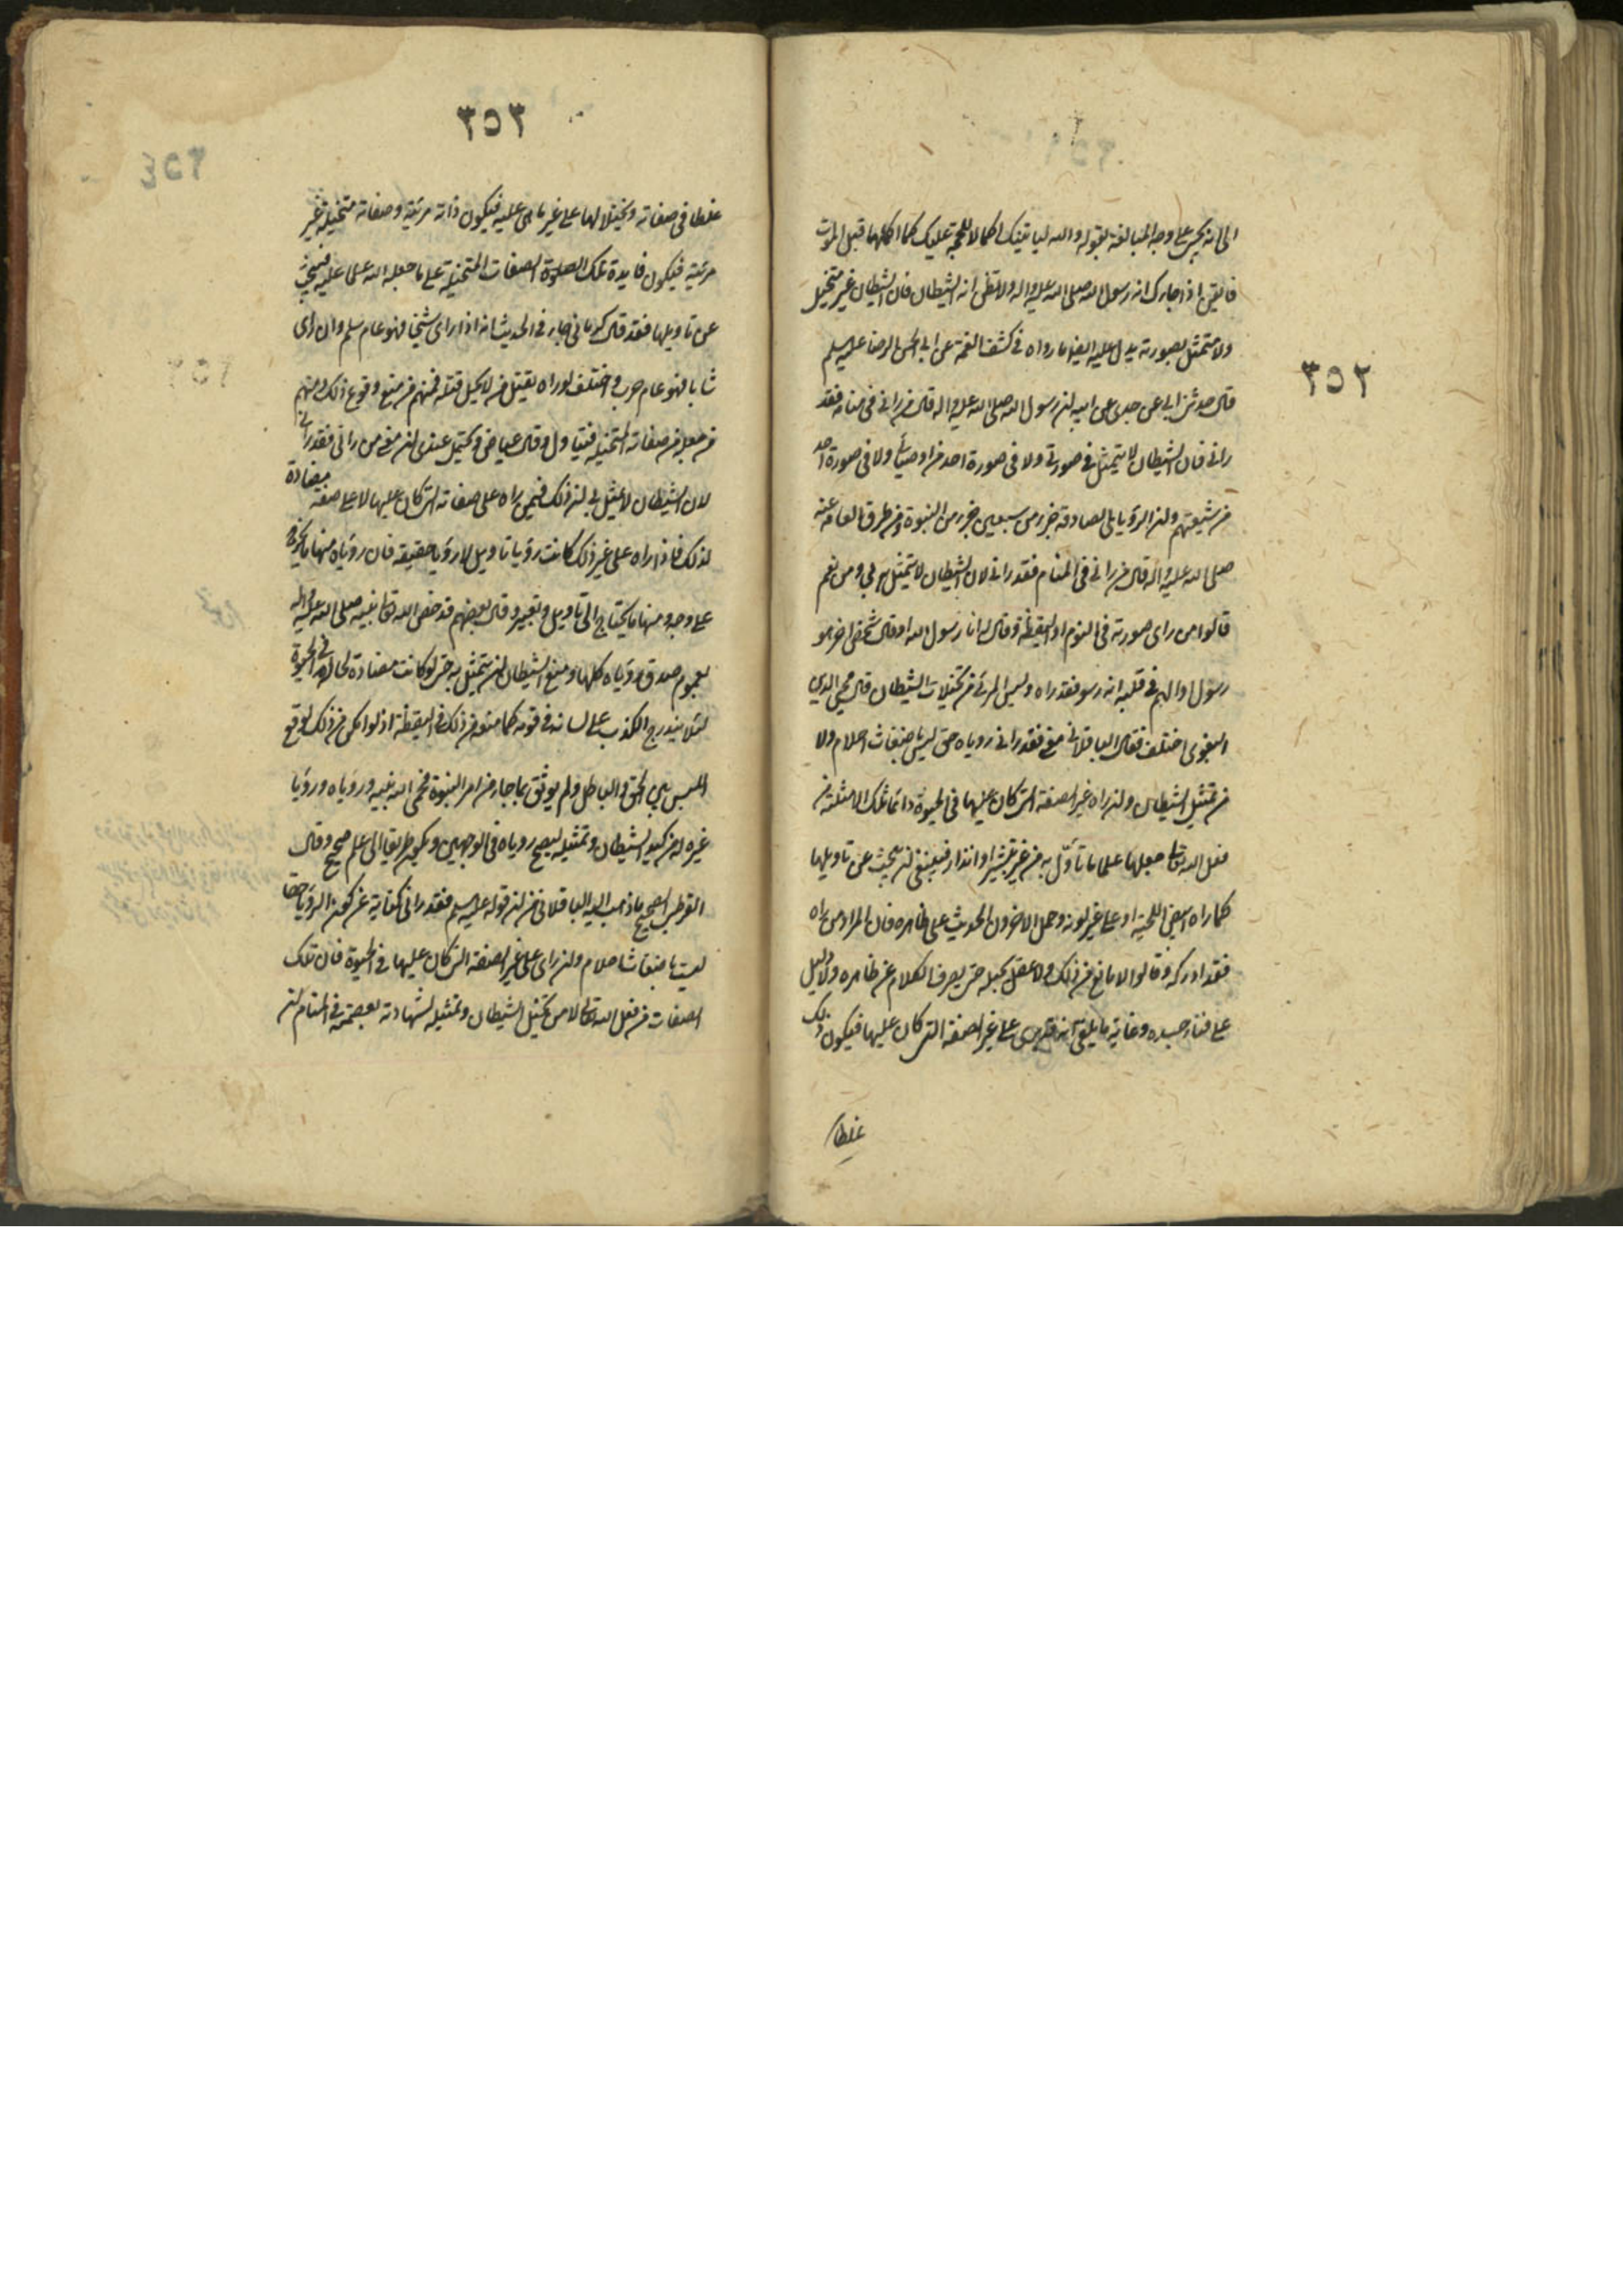 ٣٥٢
الى انه يجئ على وجه المبالغة بقوله والله لياتينك اكمالا للحجة عليك كما اكملها قبل الموت
فايقن اذا جاءك انه رسول الله صلى الله عليه واله ولا تظن انه الشيطان فان الشيطان غير متخيل
ولا متمثل بصورته يدل عليه ايضا ما رواه في كشف الغمة عن ابي الحسن الرضا عليه السلام
قال حدثنى ابي عن جدى عن ابيه ان رسول الله صلى الله عليه واله قال من رانى فى منامه فقد
رانى فان الشيطان لا يتمثل فى صورتى ولا فى صورة احد من اوصيائى ولا فى صورة احد
من شيعتهم وان الرؤيا الصادقة جزء من سبعين جزء من النبوة ومن طرق العامة عنه
صلى الله عليه واله قال من رانى فى المنام فقد رانى لان الشيطان لا يتمثل بى ومن ثم
قالوا من راى صورته فى النوم او اليقظة وقال له انا رسول الله او قال شخص اخر هو
رسول او الهم فى قلبه انه رسول فقد راه وليس المرئى من تخيلات الشيطان قال محيى الدين
البغوى اختلف فقال الباقلانى معنى فقد رانى رؤياه حق ليس باضغاث احلام ولا
من تمثيل الشيطان وان راه غير الصفة التى كان عليها فى الحيوة دائما تلك الامثلة من
فعل الله تعالى جعلها علما ما تأول به من غير تبشير او انذار فينبغى ان يبحث عن تاويلها
كما راه ابيض اللحية او على غير لونه وحمل الاخرون الحديث على ظاهره فان المراد من راه
فقد ادركه وقالوا لا مانع من ذلك ولا عقل يحيله حتى يصرف الكلام عن ظاهره ولا دليل
على فناء جسده وغاية ما يلقى انه قد يرى على غير الصفة التى كان عليها فيكون ذلك
غلطا
٣٥٣
غلطا فى صفاته وتخيلا لها على غير ما هى عليه فيكون ذاته مرئية وصفاته متخيلة غير
مرئية فيكون فايدة تلك الصفات المتخيلة على ما جعله الله علما عليه فيبحث
عن تاويلها فقد قال الكرمانى جاء فى الحديث انه اذا راى شيخا فهو عام سلم وان راى
شابا فهو عام حرب واختلف لو راه يقتل من لا يحل قتله فمنهم من منع وقوع ذلك ومنهم
من جعل من صفاته المتخيلة فيتاول وقال عياض ويحتمل عندى ان معنى من رانى فقد رانى
لان الشيطان لا يتمثل بى ان ذلك فيمن يراه على صفاته التى كان عليها لا على صفة مضادة
لذلك فاذا راه على غير ذلك كانت رؤيا تاويل لا رؤيا حقيقة فان رؤياه منها ما يخرج
على وجهه ومنها ما يحتاج الى تاويل وتعبير وقال بعضهم قد خص الله تعالى نبيه صلى الله عليه واله
بعموم صدق رؤياه كلها ومنع الشيطان ان يتمثل به حتى لو كانت مضادة لحاله فى الحيوة
لئلا يتدرج الكذب على لسانه فى قومه كما منعه من ذلك فى اليقظة اذ لو امكن من ذلك لوقع
اللبس بين الحق والباطل ولم يوثق بما جاء من امر النبوة فحمى الله نبيه ورؤياه ورؤيا
غيره له من كيد الشيطان وتمثيله ليصح رؤياه فى الوجهين ويكون طريقا الى علم صحيح وقال
القرطبى الصحيح ما ذهب اليه الباقلانى من ان قوله عليه السلام فقد رانى كناية عن كون الرؤيا حقا
ليست باضغاث احلام وان راى على غير الصفة التى كان عليها فى الحيوة فان تلك
الصفات من فعل الله تعالى لا من تخيل الشيطان وتمثيله لشهادته بعصمته فى المنام ان